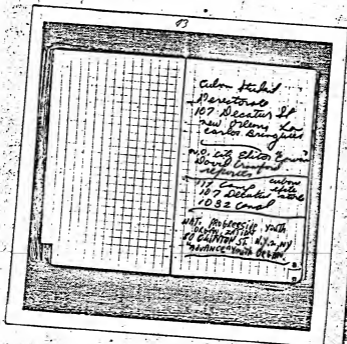 93
Cuban Student
Directorate
107 Decatur St
New Orleans, La
Carlos Bringuier
N.O. City Editor
David Crawford
reporter
117 Camp
107 Decatur
1032 Canal
NAT. PROGRESSIVE YOUTH
80 CLINTON ST. N.Y. 2, NY
"ADVANCE" YOUTH